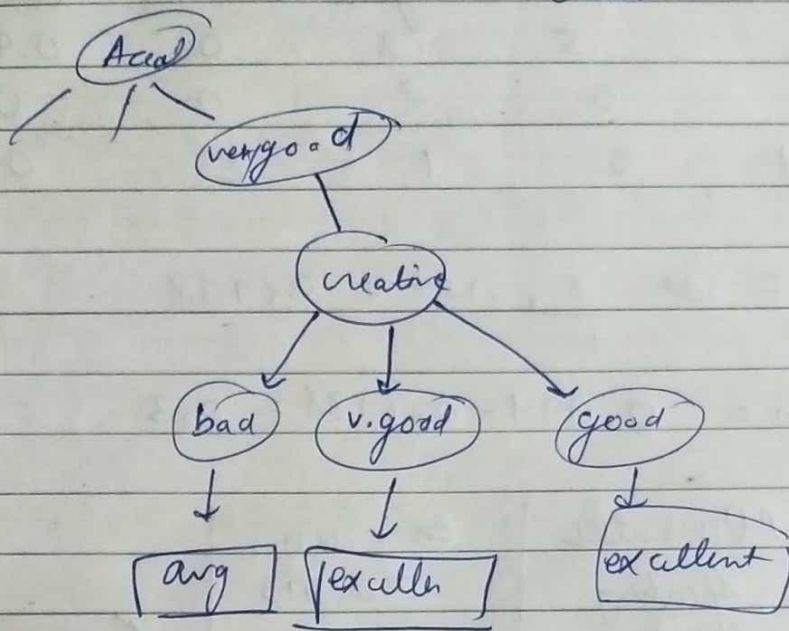 Acad
verygood
creative
bad v.good good
avg excellen excellent